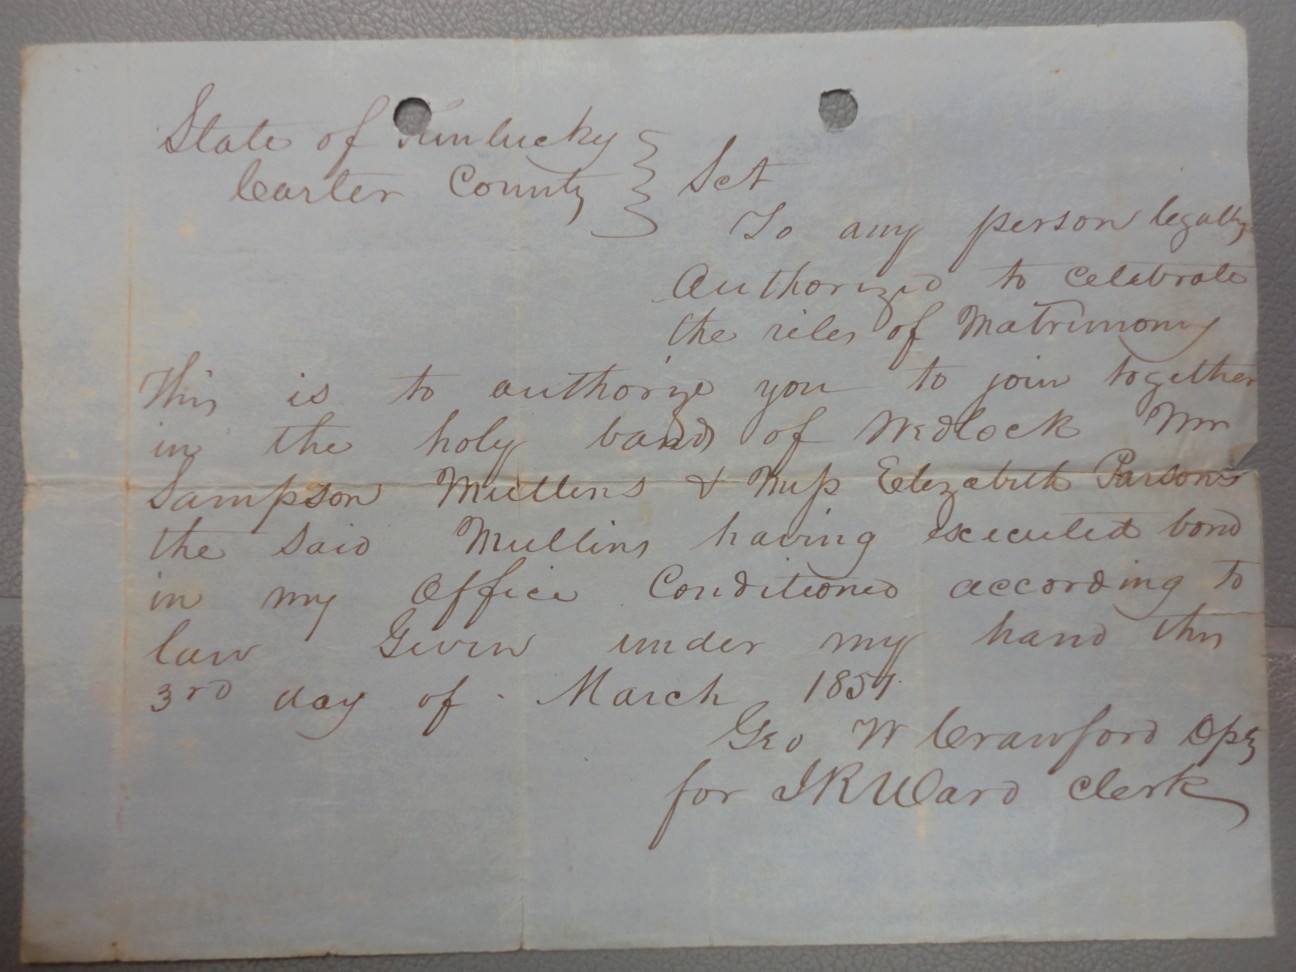 State of Kentucky
Carter County } Sct
To any person legally
Authorized to celebrate
the rites of Matrimony
This is to authorize you to join together
in the holy bands of Wedlock Wm
Sampson Mullins & Miss Elizabeth Parsons
the said Mullins having executed bond
in my Office Conditioned according to
law Given under my hand this
3rd day of March
Geo W Crawford Dpy
for J R Ward Clerk